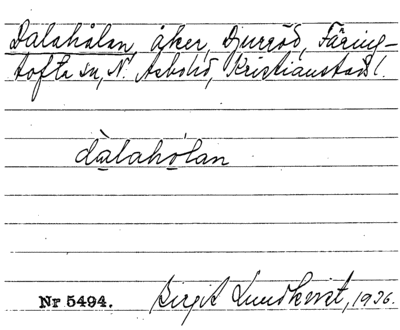 Dalahålan, åker, Djurröd, Färing-
tofta sn, N. Åsbo hd, Kristianstads l.
dàlahólan
Nr 5494. Birgit Lundkvist, 1936.